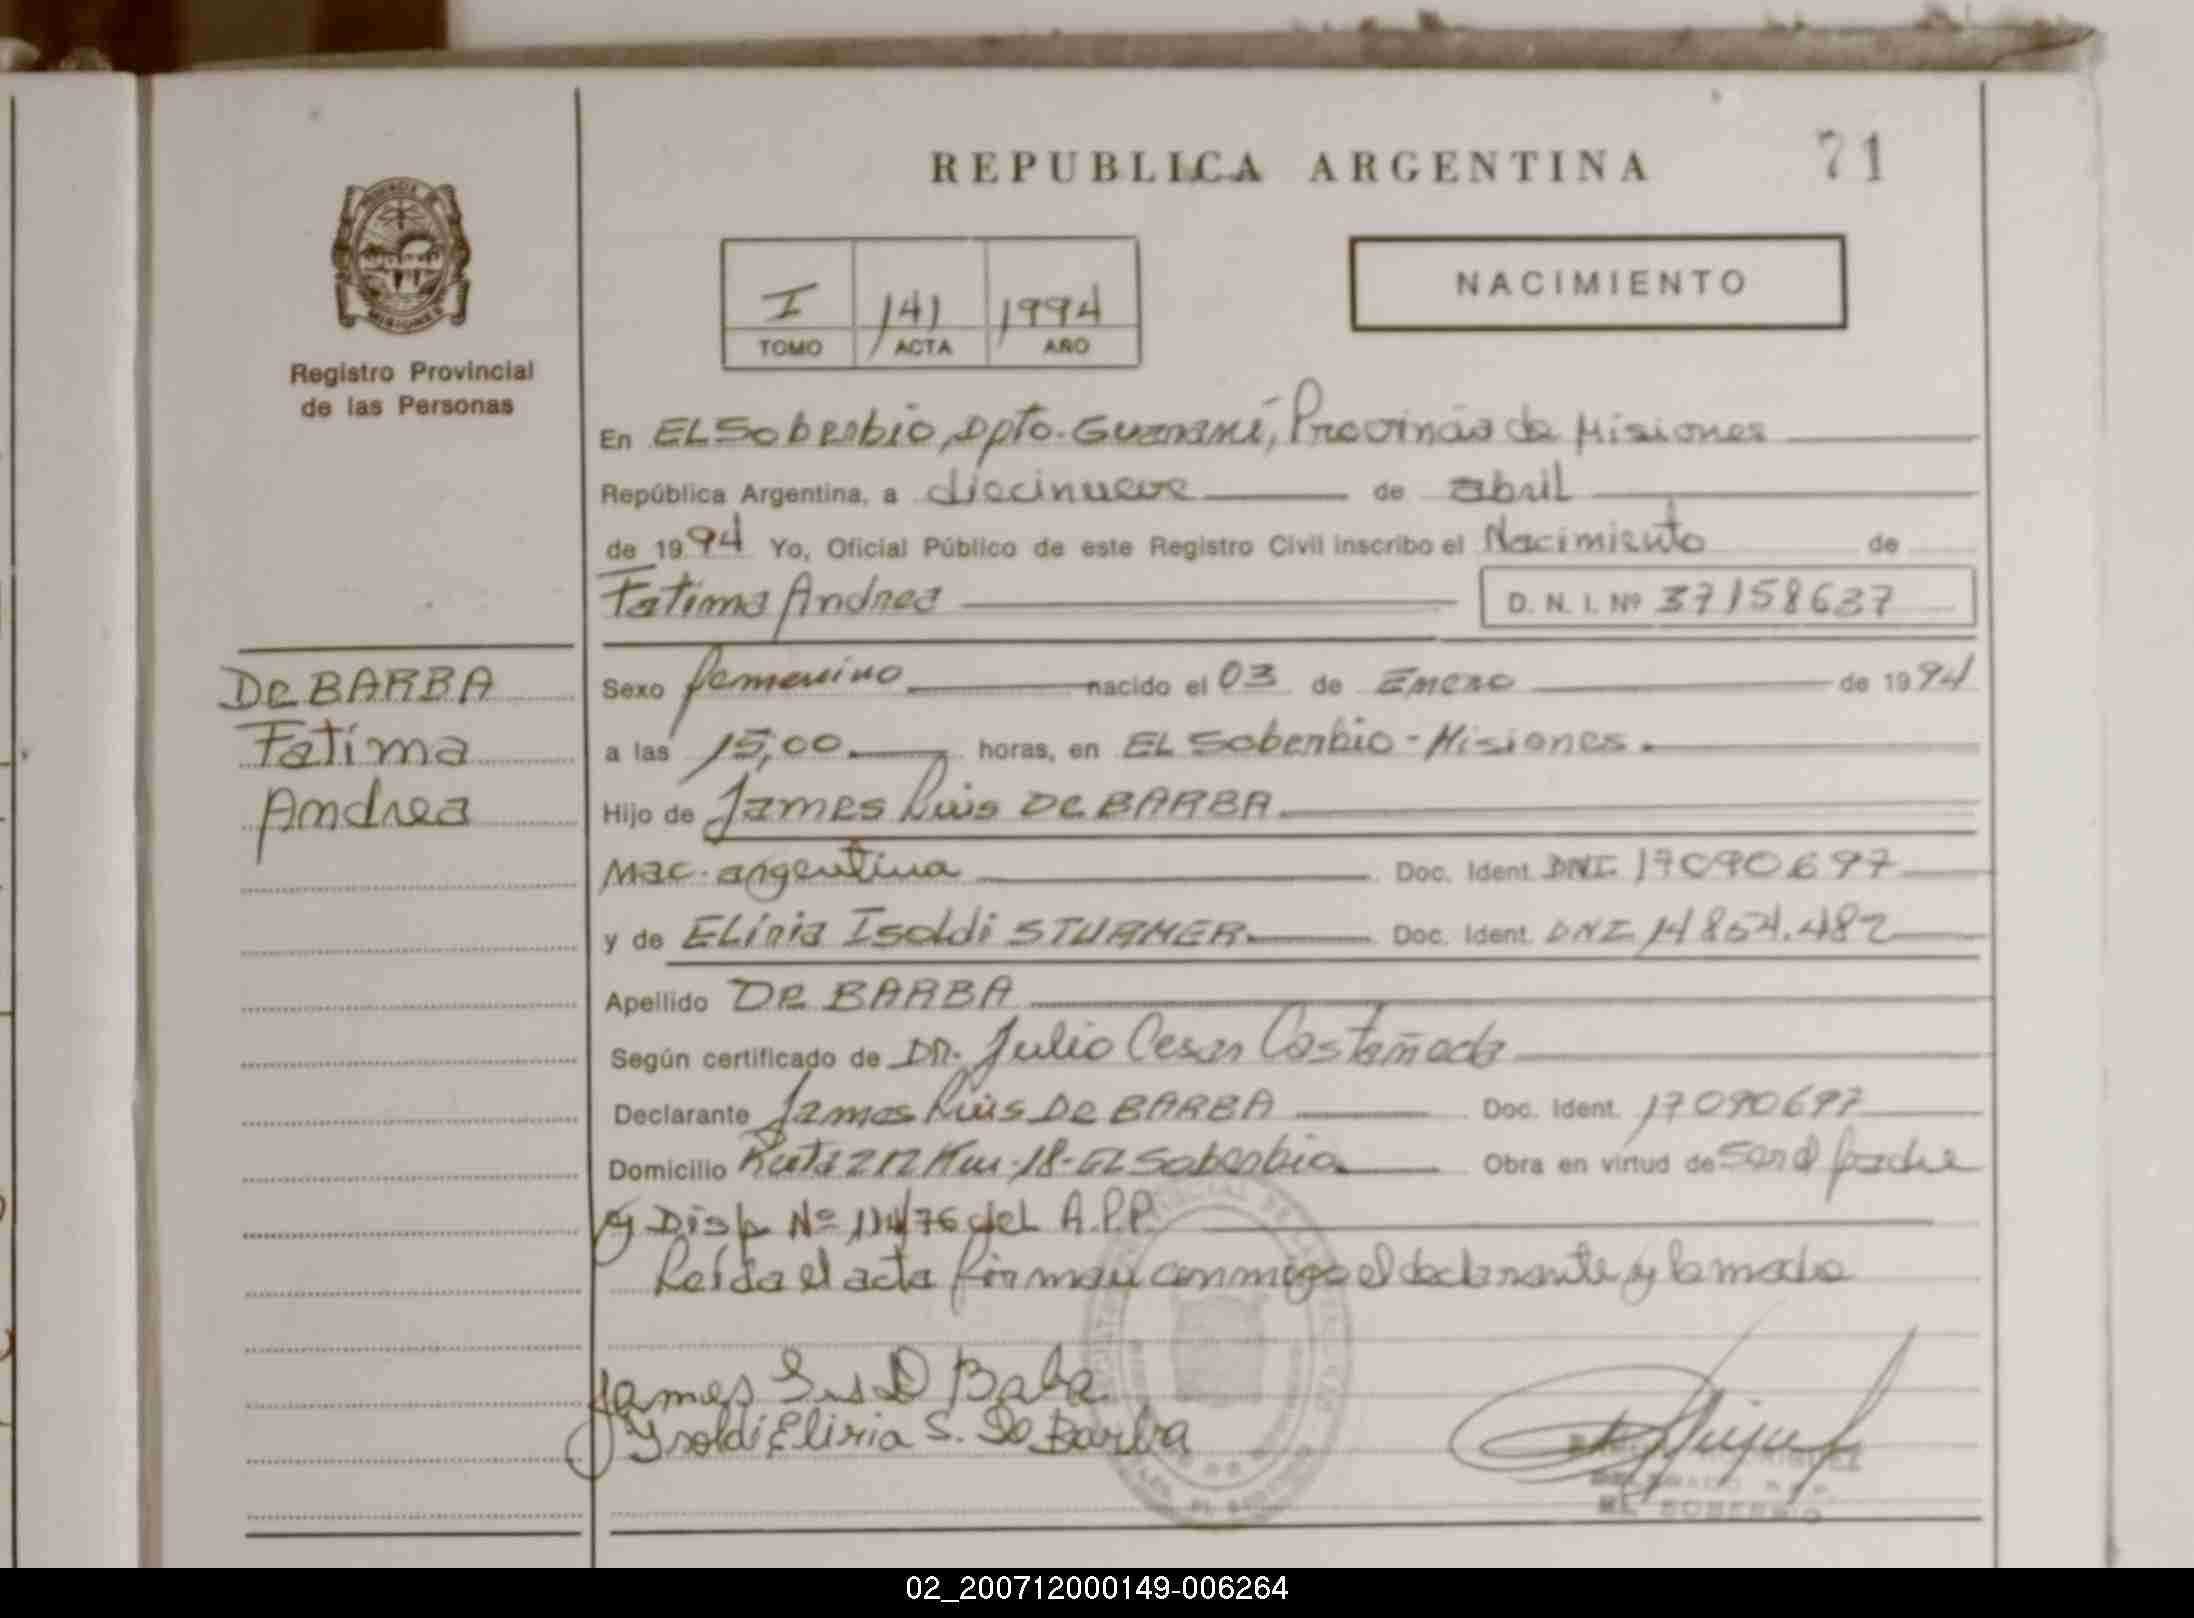 REPUBLICA ARGENTINA
71
PROVINCIA DE
MISIONES
Registro Provincial
de las Personas
I 141 1994
TOMO ACTA AÑO
NACIMIENTO
En EL Soberbio, Dpto. Guaraní, Provincia de Misiones
República Argentina, a diecinueve de abril
de 1994 Yo, Oficial Público de este Registro Civil inscribo el Nacimiento de
Fatima Andrea D. N. I. Nº 37158637
De BARBA
Fatima
Andrea
Sexo femenino nacido el 03 de Enero de 1994
a las 15,00 horas, en EL Soberbio - Misiones.
Hijo de James Luis De BARBA
Nac. argentina Doc. Ident. DNI 17090697
y de ELiria Isoldi STURMER Doc. Ident. DNI 14854.482
Apellido De BARBA
Según certificado de DR. Julio Cesar Castañeda
Declarante James Luis De BARBA Doc. Ident. 17090697
Domicilio Ruta 212 Km-18-EL Soberbio Obra en virtud de ser el padre
y Disp Nº 114/76 del A.P.P.
Leída el acta firman conmigo el declarante y la madre
James Luis D Baba
Ysoldi Eliria S. De Barba
RODRIGUEZ
DELEGADO R.P.P.
EL SOBERBIO
02_200712000149-006264